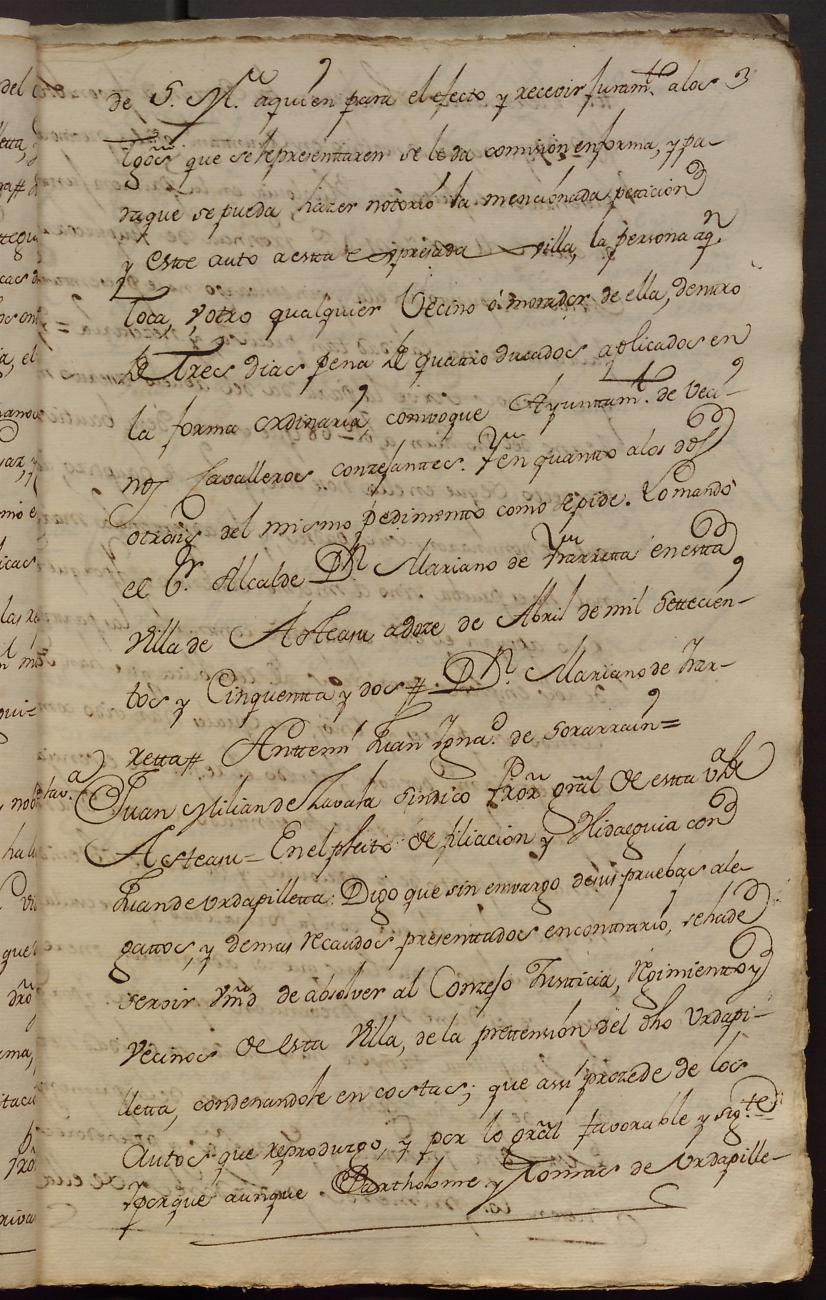 de S. M.ᵈ aquien para el efecto, y recevir juram.ᵗᵒ alos 3
tgõs que se representtaren se le da comision enforma, y pa-
raque se pueda hazer nottorio la mencionada petticion
y estte auto a estta expresada villa, la persona aq.ⁿ
toca, y otro qualquier Vecino ó morador de ella, denttro
de Tres dias pena de quattro ducados aplicados en
la forma ordinaria, convoque Ayunttam.ᵗᵒ de Veci-
nos Cavalleros conzejantes. Yen quantto alos dos
ottrosis del mismo pedimentto como sepide. Lo mando
el S.ʳ Alcalde D.ⁿ Mariano de Yrarretta en estta
Villa de Asteasu adoze de Abril de mil settecien-
tos y Cinquentta y dos # D.ⁿ Mariano de Irar-
retta # Anttemi Juan Ygna.º de Sorarrain =
Juan Milian de Zavala Sindico Prõr grãl de estta v.ª de
Asteasu = En el pleito de filiacion y Hidalguia con
Juan de Urdapilletta: Digo que sin emvargo desus pruebas ale-
gattos, y demas recaudos presenttados en conttrario, se ha de
servir Vmd de absolver al Conzejo Justicia, Rejimientto y
Vecinos de estta Villa, de la prettension del dho Urdapi-
lletta, condenandole en costtas; que assi prozede de los
Autos que reprodurgo, y por lo grãl favorable y sig.ᵗᵉ
Yporque aunque Bartholome y Tomas de Urdapille-